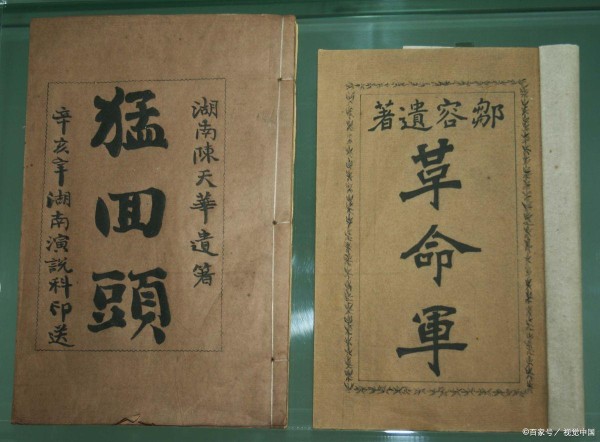 湖南陳天華遺箸
猛回頭
辛亥年湖南演說科印送
鄒容遺著
革命軍
©百家号／视觉中国